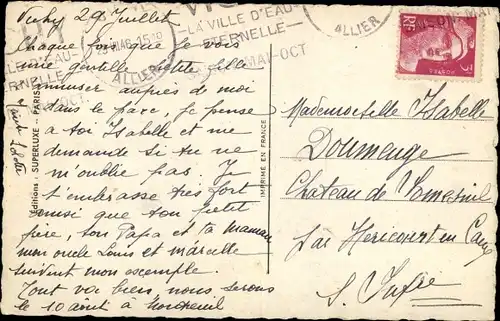 Vichy 29 Juillet
Chaque fois que je vois
une gentille petite fille
s'amuser auprès de moi
dans le parc, je pense
a toi Isabelle et me
demande si tu ne
m'oublie pas. Je
t'embrasse très fort
ainsi que ton petit
frère, ton Papa et ta Maman
mon oncle Louis et
suivent mon exemple.
Tout va bien, nous serons
le 10 août à
Éditions SUPERLUXE - PARIS
IMPRIMÉ EN FRANCE
LA VILLE D'EAU
ETERNELLE
MAI-OCT
ALLIER
ALLIER
RF
POSTES
3
Mademoiselle Isabelle
Doumenge
Chateau de
par Héricourt en Caux
S. Infre